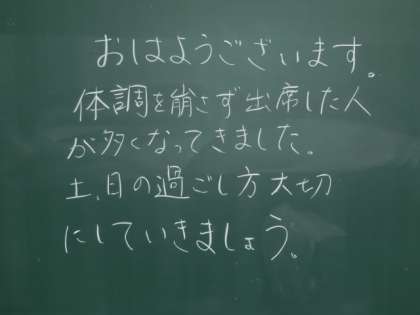 おはようございます。
体調を崩さず出席した人
が多くなってきました。
土、日の過ごし方大切
にしていきましょう。